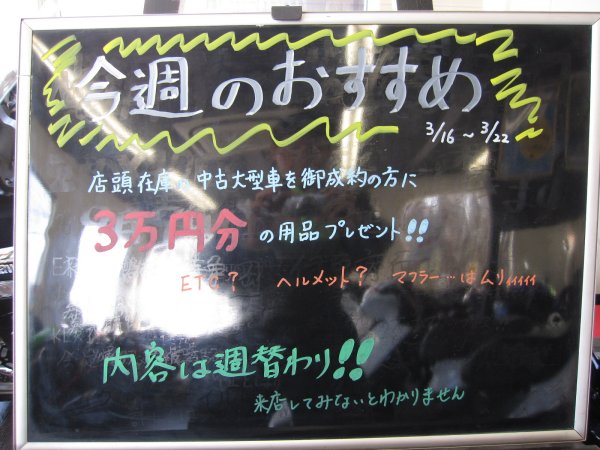 今週のおすすめ
3/16～3/22
店頭在庫の中古大型車を御成約の方に
3万円分の用品プレゼント!!
ETC? ヘルメット? マフラー…はムリィィィィィ
内容は週替わり!!
来店してみないとわかりません